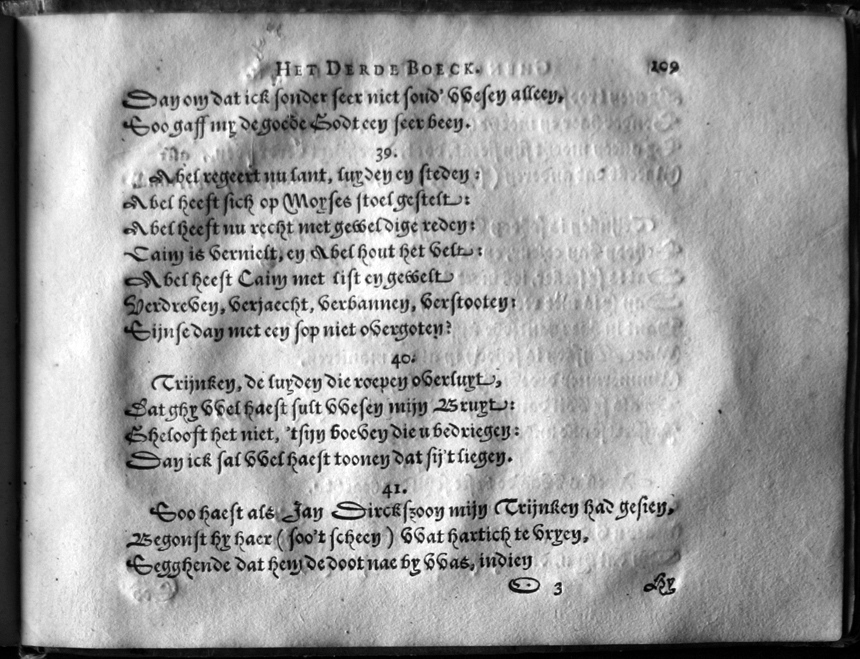 HET DERDE BOECK. 109
Dan om dat ick sonder seer niet sond' wesen alleen,
Soo gaff my de goede Godt een seer been.
39.
Abel regeert nu lant, luyden en steden:
Abel heeft sich op Moyses stoel gestelt:
Abel heeft nu recht met geweldige reden:
Caim is vernielt, en Abel hout het velt:
Abel heeft Caim met list en gewelt
Verdreven, verjaecht, verbannen, verstooten:
Sijnse dan met een sop niet overgoten?
40.
Trijnken, de luyden die roepen overluyt,
Dat ghy wel haest sult wesen mijn Bruyt:
Ghelooft het niet, 'tsijn boeven die u bedriegen:
Dan ick sal wel haest toonen dat sij't liegen.
41.
Soo haest als Jan Dirckszoon mijn Trijnken had gesien,
Begonst hy haer (soo't scheen) wat hartich te vryen,
Segghende dat hem de doot nae by was, indien
O 3 Hy